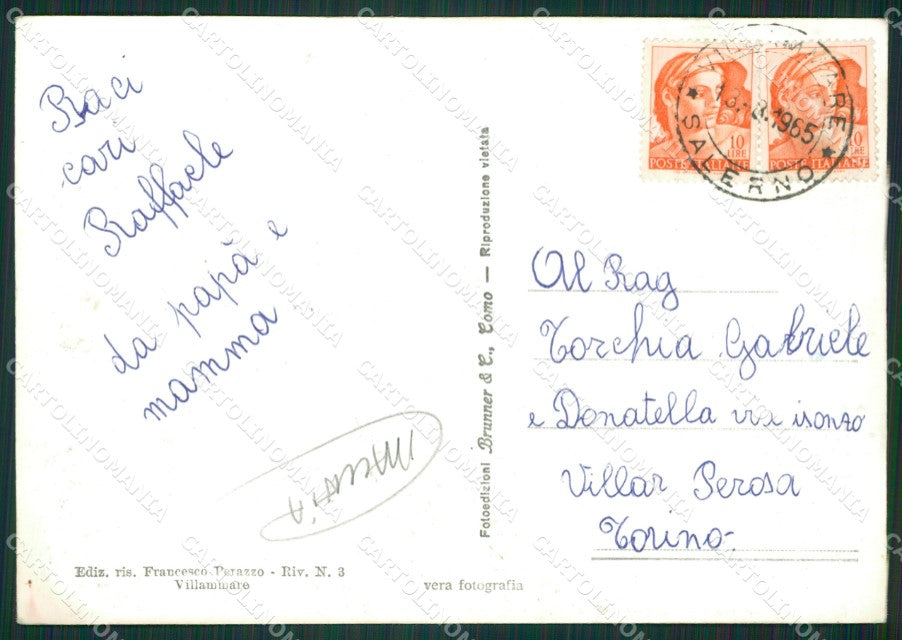 Baci
cari
Raffaele
da papà e
mamma
Ediz. ris. Francesco Perazzo - Riv. N. 3
Villammare
vera fotografia
Fotoedizioni Brunner & C., Como — Riproduzione vietata
10
LIRE
POSTE ITALIANE
POSTE ITALIANE
13.-8.1965
SALERNO
Al Rag
Torchia Gabriele
e Donatella via isonzo
Villar Perosa
Torino.
CARTOLINOMANIA